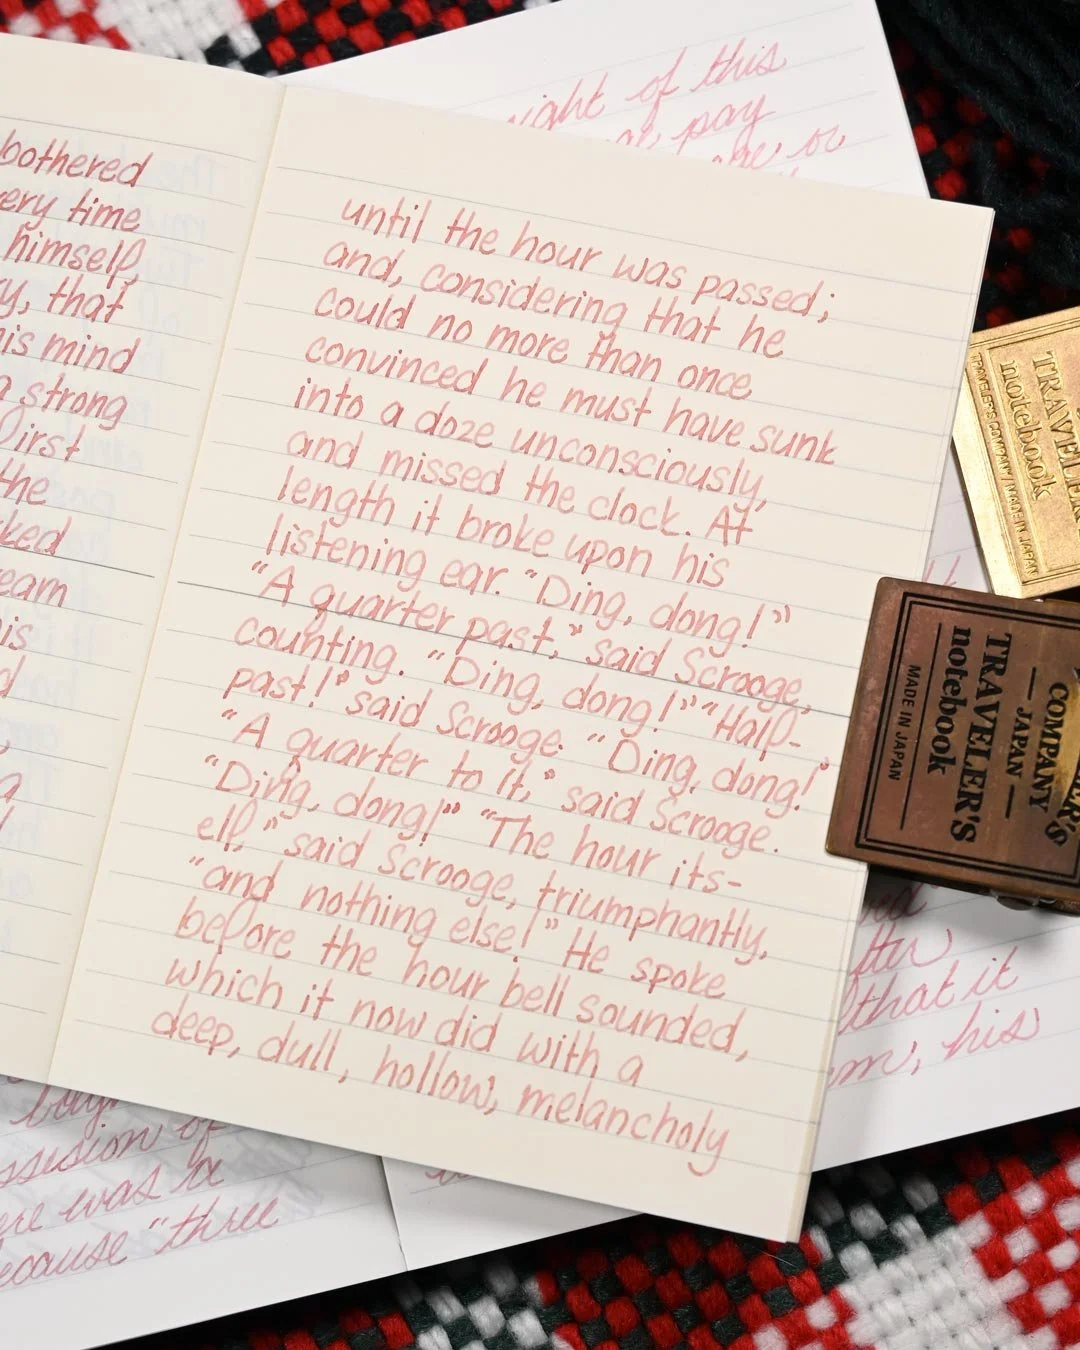 ight of this
pay
or
bothered
ery time
himself,
y, that
is mind
a strong
first
the
ked
eam
is
d
a
until the hour was passed;
and, considering that he
could no more than once
convinced he must have sunk
into a doze unconsciously,
and missed the clock. At
length it broke upon his
listening ear. "Ding, dong!"
"A quarter past," said Scrooge,
counting. "Ding, dong!" "Half-
past!" said Scrooge. "Ding, dong!"
"A quarter to it," said Scrooge.
"Ding, dong!" "The hour its-
elf," said Scrooge, triumphantly,
"and nothing else!" He spoke
before the hour bell sounded,
which it now did with a
deep, dull, hollow, melancholy
TRAVELER
notebook
TRAVELER'S COMPANY / MADE IN JAPAN
COMPANY
— JAPAN —
TRAVELER'S
notebook
MADE IN JAPAN
that it
m, his
ssesion of
ere was a
ecause "three